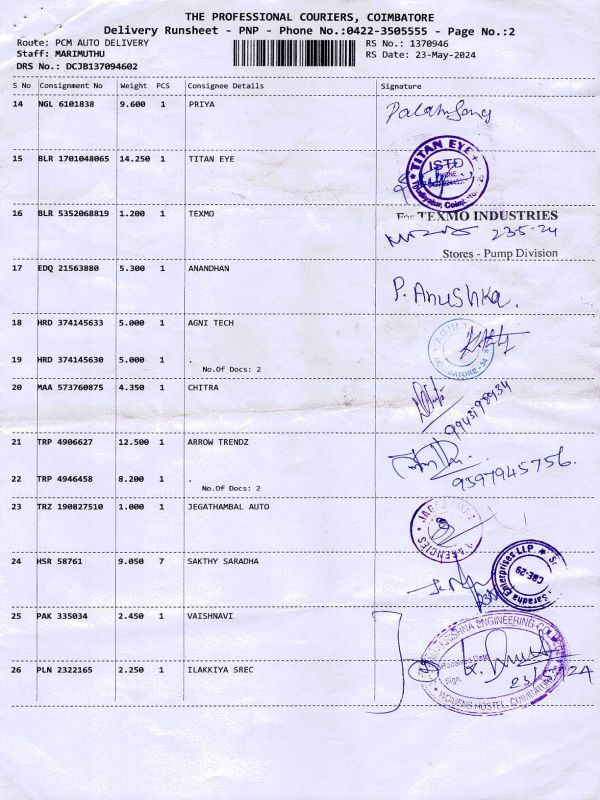 THE PROFESSIONAL COURIERS, COIMBATORE
Delivery Runsheet - PNP - Phone No.:0422-3505555 - Page No.:2
Route: PCM AUTO DELIVERY
RS No.: 1370946
Staff: MARIMUTHU
RS Date: 23-May-2024
DRS No.: DCJB137094602
S No Consignment No Weight PCS Consignee Details Signature
14 NGL 6101838 9.600 1 PRIYA
15 BLR 1701048065 14.250 1 TITAN EYE
TITAN EYE
16 BLR 5352068819 1.200 1 TEXMO
For TEXMO INDUSTRIES
23.5.24
Stores - Pump Division
17 EDQ 21563880 5.300 1 ANANDHAN
P. Anushka.
18 HRD 374145633 5.000 1 AGNI TECH
19 HRD 374145630 5.000 1 .
No.Of Docs: 2
20 MAA 573760875 4.350 1 CHITRA
9943198934
21 TRP 4906627 12.500 1 ARROW TRENDZ
9397945756.
22 TRP 4946458 8.200 1 .
No.Of Docs: 2
23 TRZ 190827510 1.000 1 JEGATHAMBAL AUTO
AGENCIES
24 HSR 58761 9.050 7 SAKTHY SARADHA
Saradha Enterprises LLP
CBE-29
25 PAK 335034 2.450 1 VAISHNAVI
26 PLN 2322165 2.250 1 ILAKKIYA SREC
ENGINEERING
Sign.
WOMENS HOSTEL, COIMBATORE